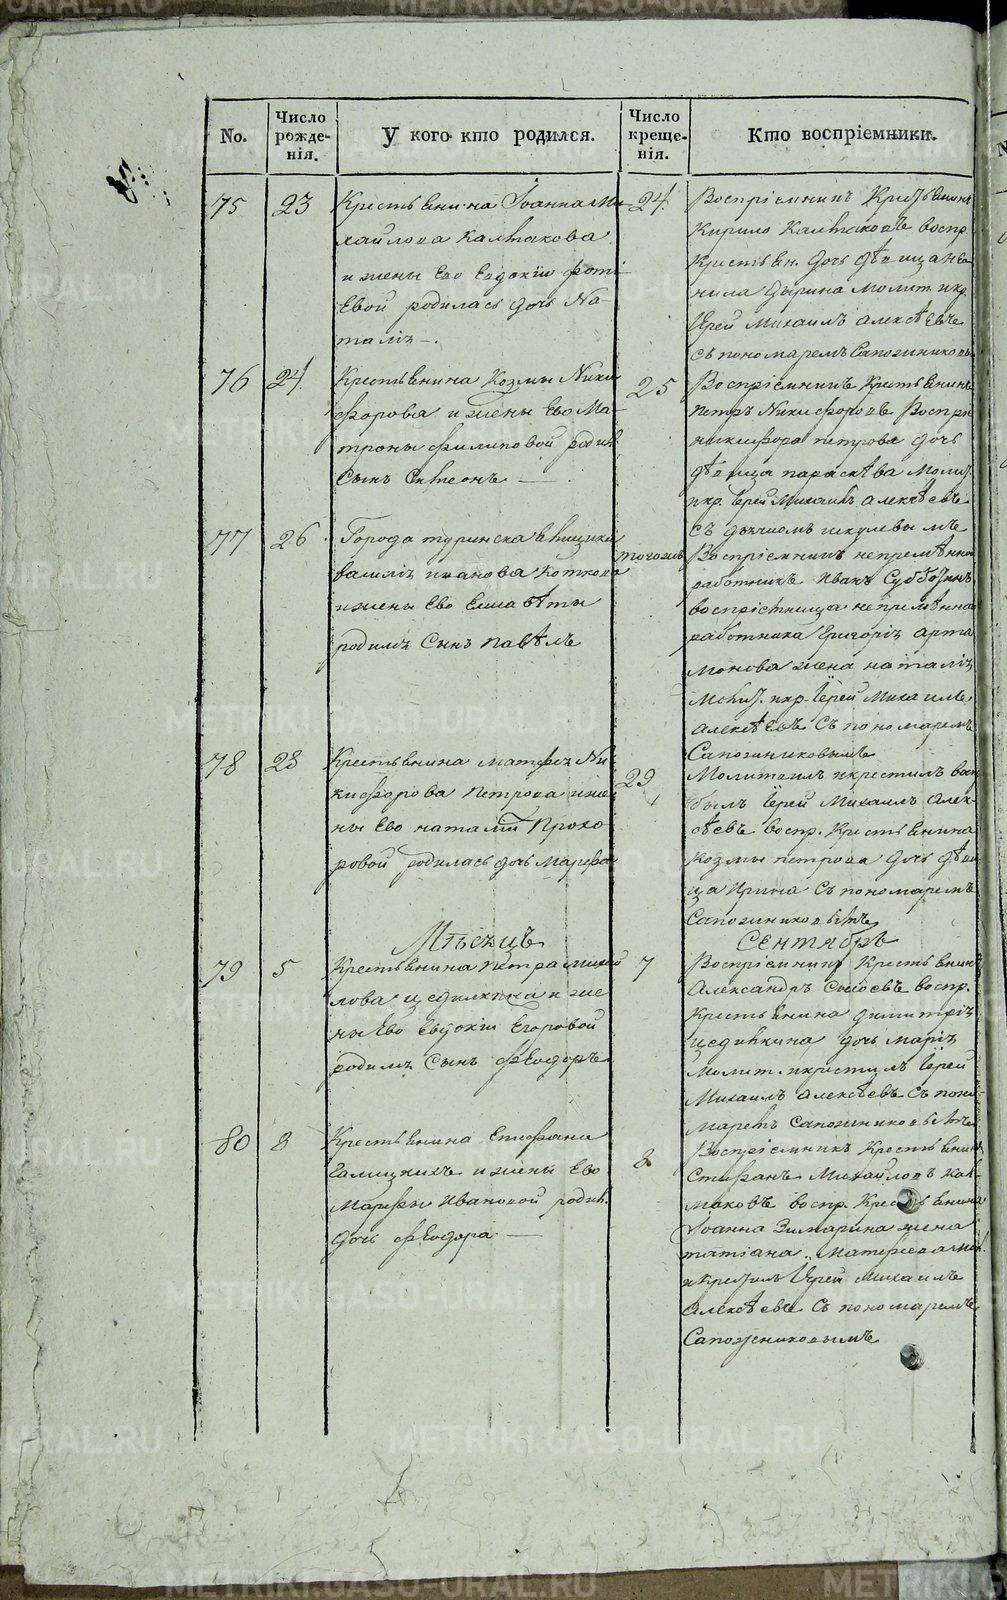 No.
Число рожде-нія.
У кого кто родился.
Число креще-нія.
Кто воспріемники.
75
23
Крестьянина Іоанна Ми-
хайлова Калтакова
и жены Его Евдокіи Фоти-
Евой родилась дочь На-
талія
24
Воспріемникъ Крестьянинъ
Кирило Калтаковъ воспр.
Крестьян. дочь дѣвица
дырина молит. и кр.
Іерей Михаилъ Алексѣевъ
съ пономаремъ Сапожниковы
76
24
Крестьянина Козмы Ники
форова и жены Его Ма-
троны Филиповой родил.
Сынъ Симеонъ
25
Воспріемникъ Крестьянинъ
петръ Никифоровъ Воспрі
никифора петрова дочь
дѣвица параскѣва Молит.
и кр. Іерей Михаилъ Алексѣевъ
съ дьячкомъ
77
26
Города туринска
василія иванова
и жены Его Елисавѣты
родился Сынъ павѣлъ
тогожъ
Воспріемникъ непремѣнной
работникъ Иванъ Субботинъ
воспріемница непремѣннаго
работника Григорія арта
монова жена наталія
Молит. и кр. Іерей Михаилъ
алексѣевъ Съ пономаремъ
Сапожниковымъ
78
28
Крестьянина матфея Ни
кифорова Петрова и же
ны Его наталіи Прохо
ровой родилась дочь Марфа
29
Молитвилъ и крестилъ
былъ Іерей Михаилъ Алек-
сѣевъ воспр. Крестьянина
козмы петрова дочь дѣви
ца Ирина Съ пономаремъ
Сапожниковымъ
Мѣсяцъ
Сентябрь
79
5
Крестьянина петра Михай
лова и же
ны Его Евдокіи Егоровой
родился Сынъ Ѳеодоръ
7
Воспріемникъ Крестьянинъ
Александръ Сысоевъ воспр.
Крестьянина димитрія
дочь марія
Молит. и крестилъ Іерей
Михаилъ алексѣевъ Съ поно-
маремъ Сапожниковымъ
80
8
Крестьянина Стефана
Галицкихъ и жены Его
Марфы Ивановой родил.
дочь Ѳеодора
8
Воспріемникъ Крестьянинъ
Стефанъ Михайловъ Кал-
маковъ воспр. Крестьянина
Іоанна Зимарина жена
татіана Матфеева мол.
и крестилъ Іерей Михаилъ
Алексѣевъ Съ пономаремъ
Сапожниковымъ
METRIKI.GASO-URAL.RU